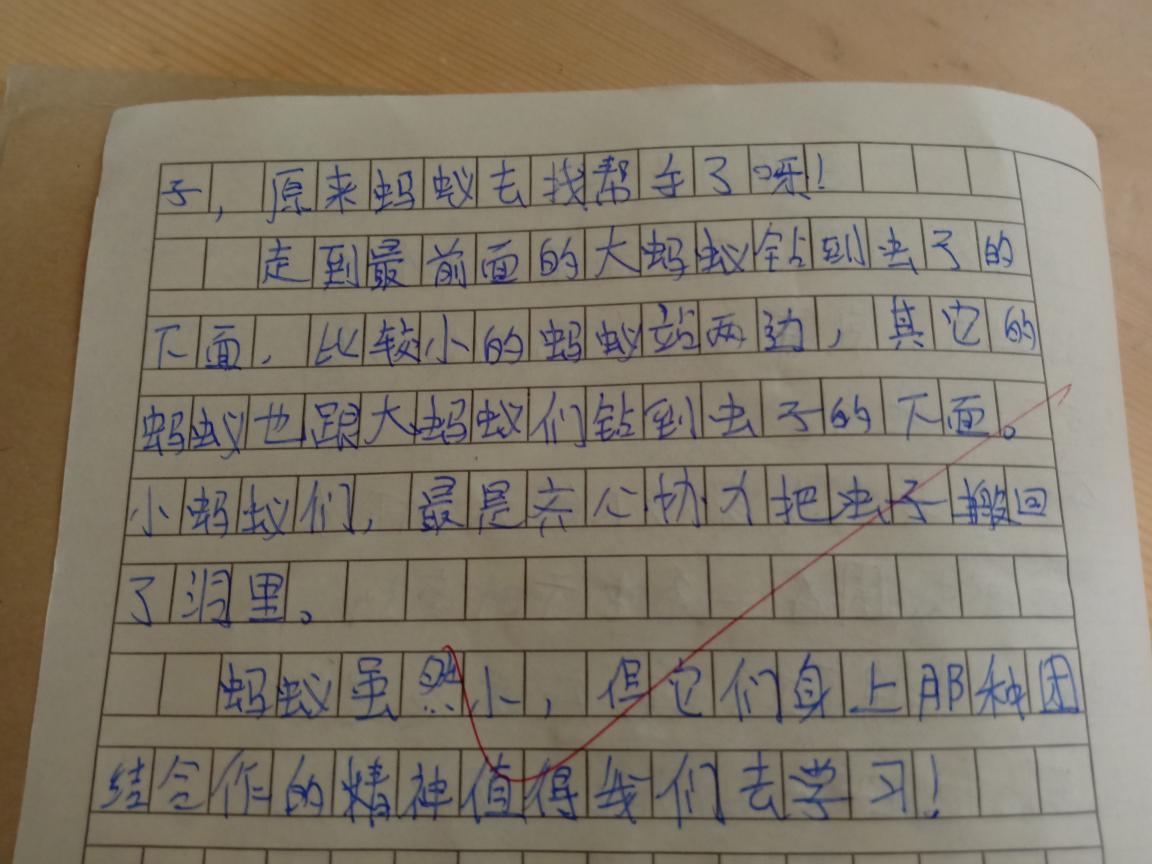 子，原来蚂蚁去找帮手了呀！
走到最前面的大蚂蚁钻到虫子的
下面，比较小的蚂蚁站两边，其它的
蚂蚁也跟大蚂蚁们钻到虫子的下面。
小蚂蚁们，最是齐心协力把虫子搬回
了洞里。
蚂蚁虽然小，但它们身上那种团
结合作的精神值得我们去学习！